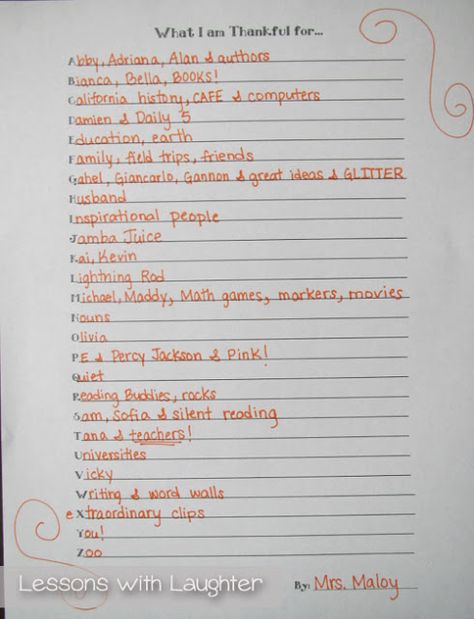 What I am Thankful for...
Abby, Adriana, Alan & authors
Bianca, Bella, BOOKS!
California history, CAFE & computers
Damien & Daily 5
Education, earth
Family, field trips, friends
Gabel, Giancarlo, Gannon & great ideas & GLITTER
Husband
Inspirational people
Jamba Juice
Kai, Kevin
Lightning Rod
Michael, Maddy, Math games, markers, movies
Nouns
Olivia
P.E & Percy Jackson & Pink!
Quiet
Reading Buddies, rocks
Sam, Sofia & silent reading
Tana & teachers!
Universities
Vicky
Writing & word walls
eXtraordinary clips
You!
Zoo
Lessons with Laughter
By: Mrs. Maloy